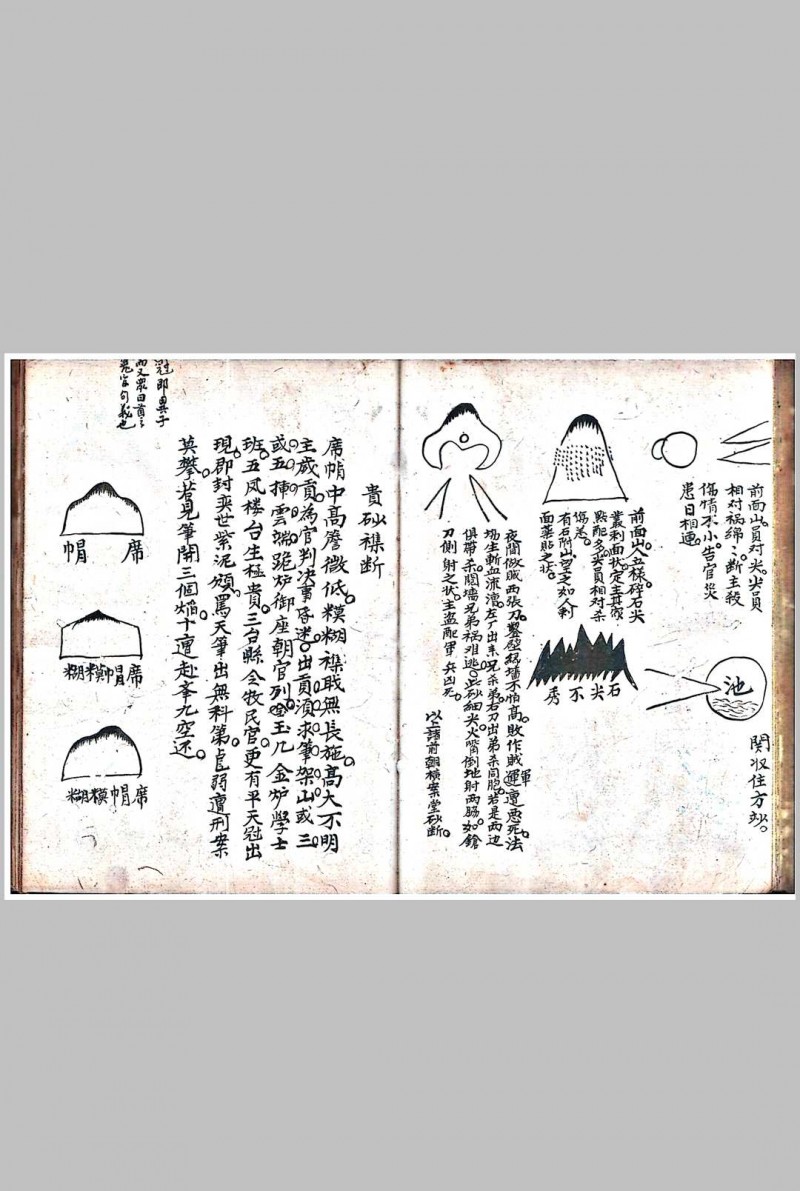 前面山員对尖尖員
相对祸绵〻断主殺
傷情不小告官災
患日相連
池
関収住方妙
前面山立様碎石尖
叢剥面状定主其殺
配多尖員相对杀
傷羔
有石附山望之如人剥
面葉貼之状
石尖不秀
夜間做賊两張刀鑿壁极墙不怕高敗作賊運遭恶死法
軍
場生斬血流漕左刀出未兄杀弟右刀出弟杀同胞若是两边
俱帶杀閱墙兄弟祸难逃此砂细尖火嘴倒地射两脇如鎗
刀側射之状主盗配軍兵凶死
以上諸前朝横案堂砂断
貴砂襍断
席帽中高簷微低糢糊襍職無長施高大不明
主歲貢為官判决事昏迷出貢須求筆架山或三
或五挿雲端跪炉御座朝官列玉几金炉學士
班五凤楼台生極貴三台縣令牧民官更有平天冠出
現郡封奕世紫泥頒罵天筆出無科第低弱遭刑案
莫攀若見筆開三個焰十遭赴峯九空还
冠即異子
而又衆由首之
冕字句義也
席帽
席帽糢糊
席帽糢糊